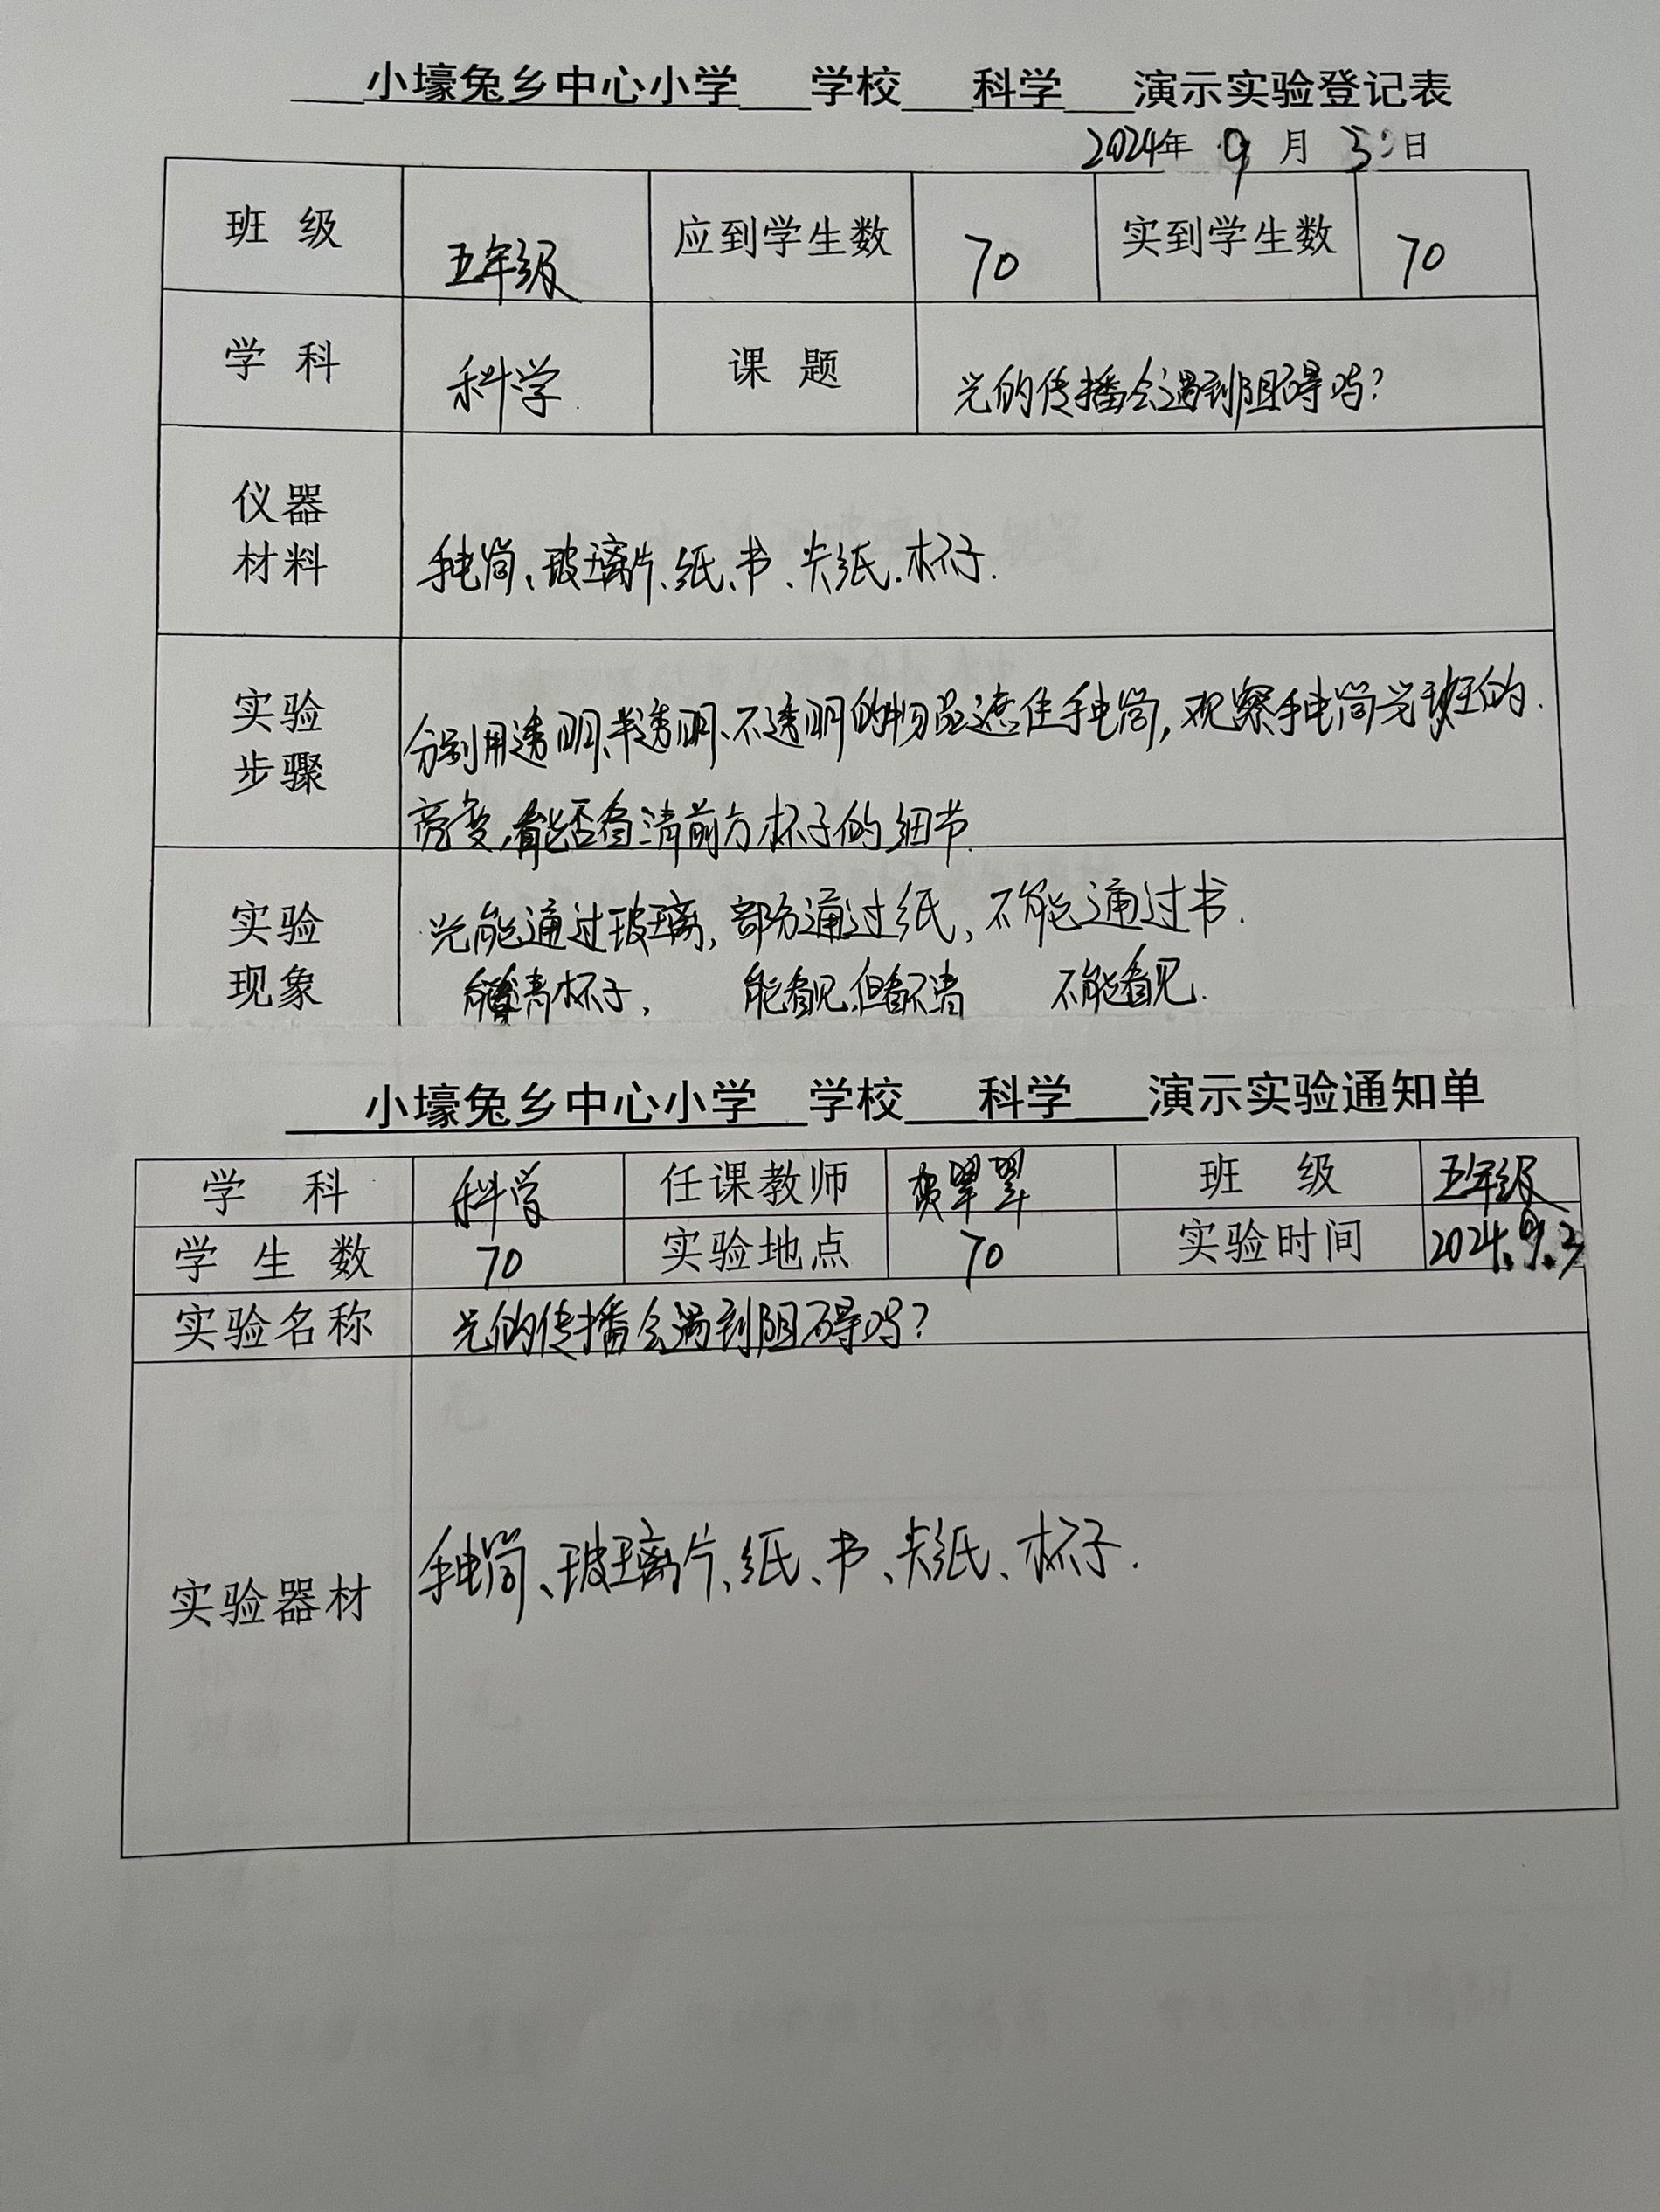 小壕兔乡中心小学 学校 科学 演示实验登记表
2024年 9 月 3 日
班 级 五年级 应到学生数 70 实到学生数 70
学 科 科学 课 题 光的传播会遇到阻碍吗?
仪器
材料
手电筒、玻璃片、纸、书、卡纸、杯子.
实验
步骤
分别用透明、半透明、不透明的物品遮住手电筒,观察手电筒光斑的
亮变,能否看清前方杯子的细节.
实验
现象
光能通过玻璃,部分通过纸,不能通过书.
能看清杯子, 能看见,但看不清 不能看见.
小壕兔乡中心小学 学校 科学 演示实验通知单
学 科 科学 任课教师 贺翠翠 班 级 五年级
学 生 数 70 实验地点 70 实验时间 2024.9.3
实验名称 光的传播会遇到阻碍吗?
实验器材 手电筒、玻璃片、纸、书、卡纸、杯子.